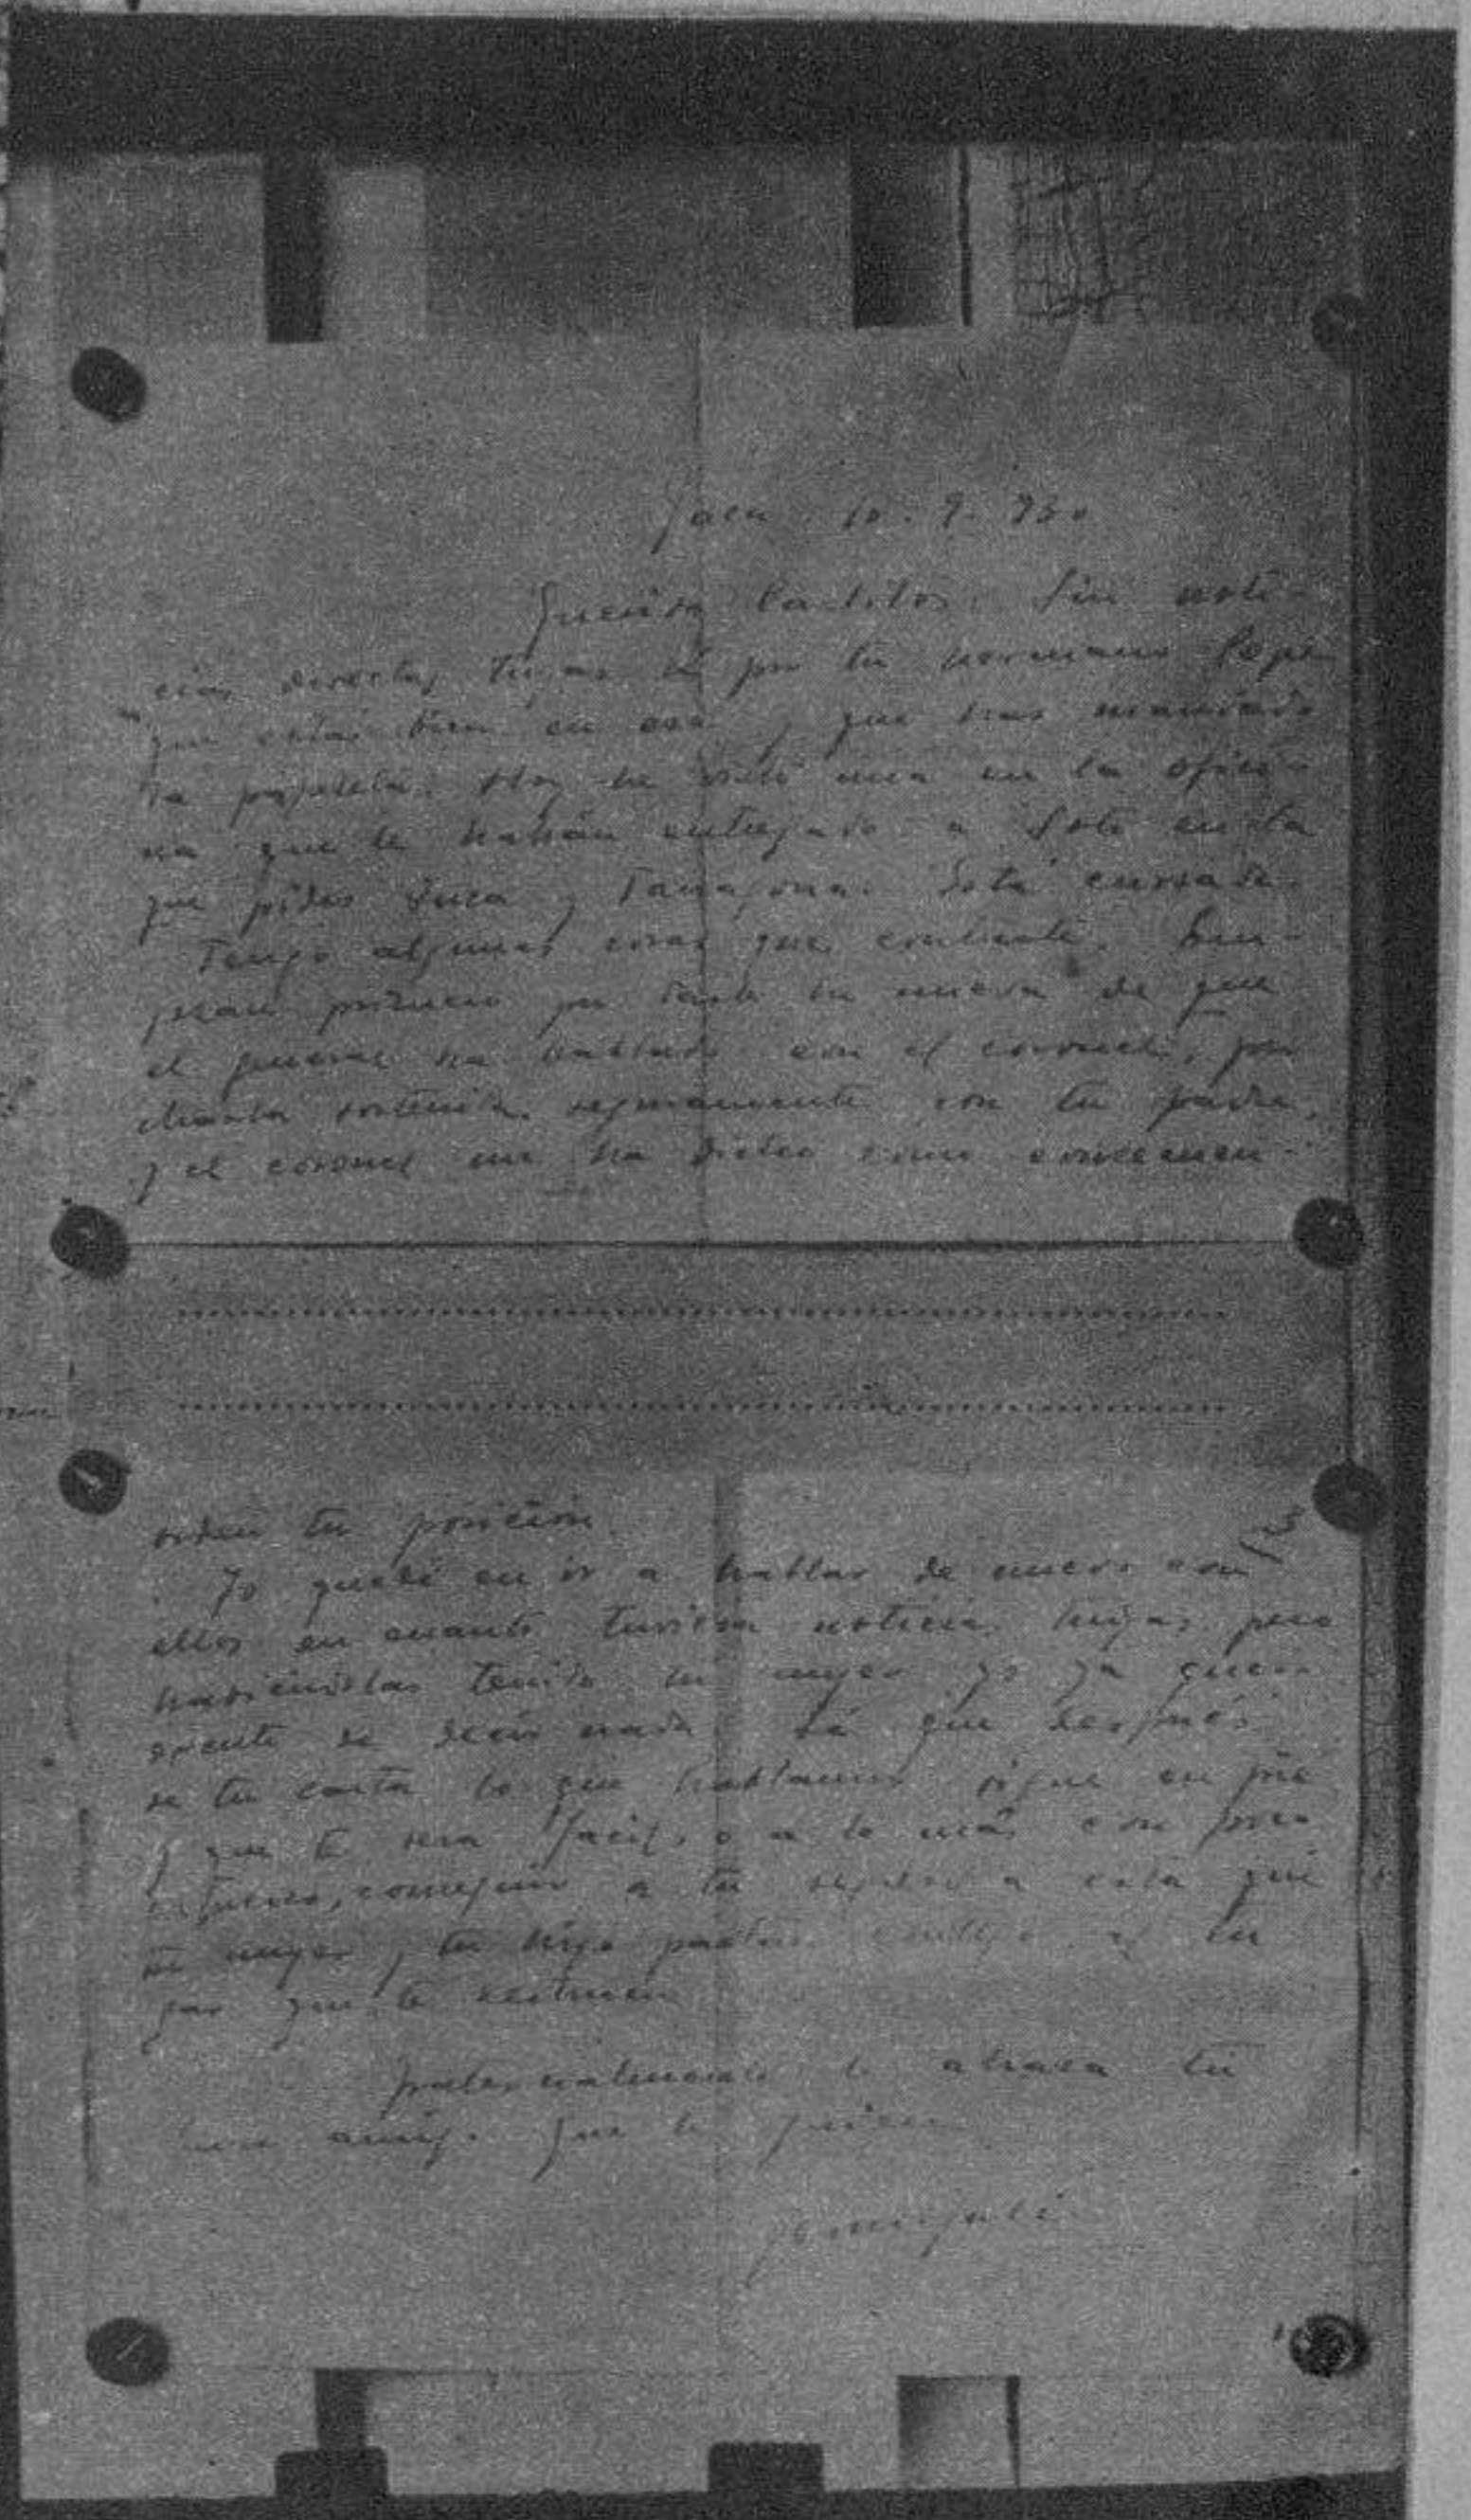 Jaca 10.9.930
Querido Carlitos: Sin noti-
cias directas tuyas sé por tu hermano Pepe
que estás bien en esa y que has mandado
la papeleta. Hoy he visto una en la ofici-
na que le habían entregado a Soto en la
que pides Inca y Tarragona. Está cursada.
Tengo algunas cosas que contarte.
primero por darte la nueva de que
el general ha hablado con el coronel, por
charla sostenida seguramente con tu padre,
y el coronel me ha dicho como
orden tu posición.
Yo quedé en ir a hablar de nuevo con
ellos en cuanto tuviera noticias tuyas pero
habiéndolas tenido tu mujer yo ya que-
de decir nada. Sé que después
de tu carta lo que hablamos sigue en pie
y que te será fácil, o a lo más con poco
esfuerzo, conseguir a tu regreso a esta que
tu mujer y tu hijo partan contigo al lu
gar que te destinen
Fraternalmente te abraza tu
buen amigo que te quiere